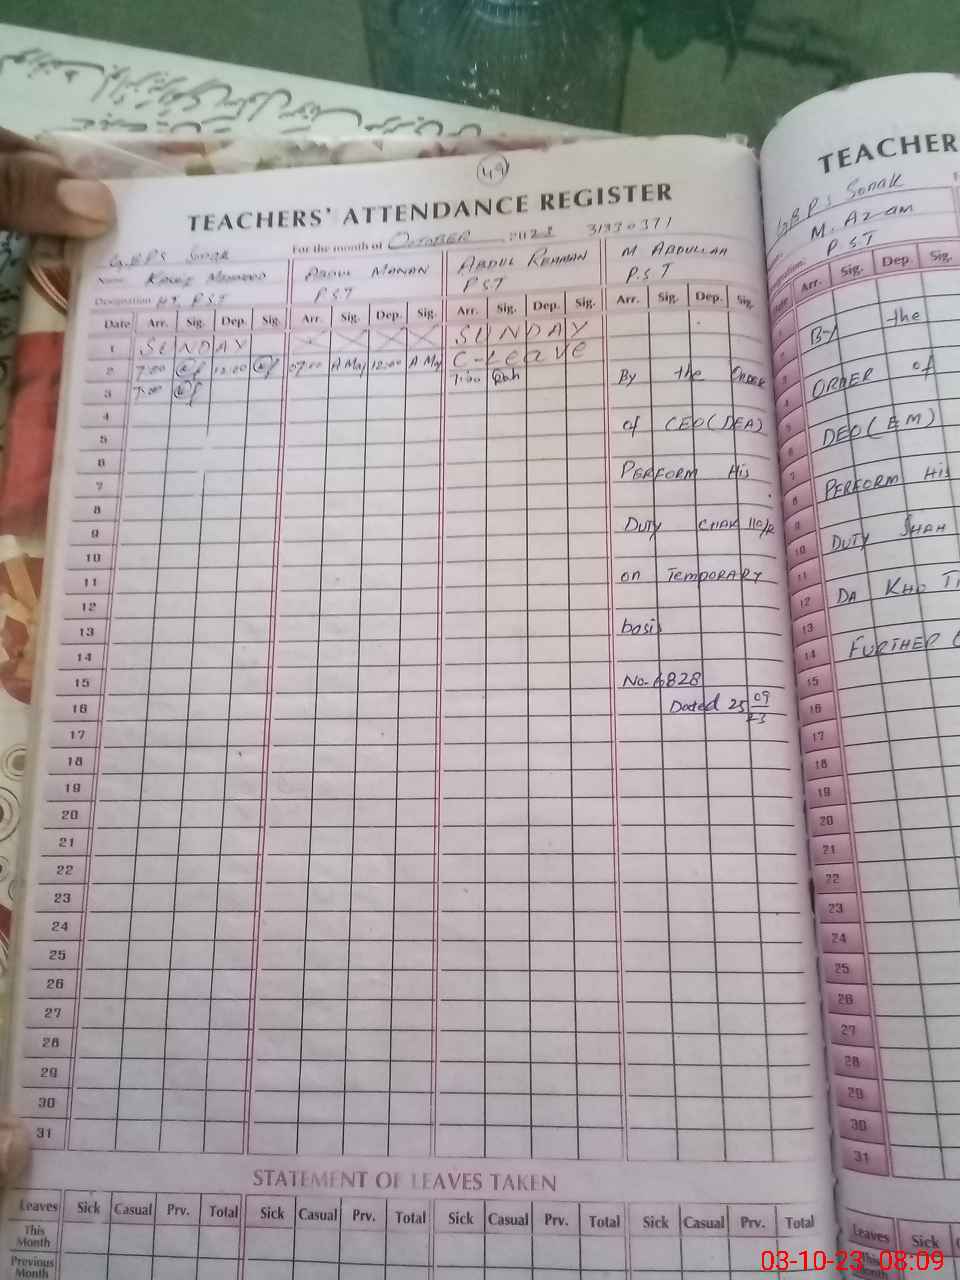 49
TEACHERS' ATTENDANCE REGISTER
G.B.P.S Sonak For the month of October 2023 31330371
Name Abdul Manan Abdul Rehman M Abdullah
Designation HT. P.S.T P.S.T P.S.T P.S.T
Date Arr. Sig. Dep. Sig. Arr. Sig. Dep. Sig. Arr. Sig. Dep. Sig. Arr. Sig. Dep. Sig.
1 SUNDAY X X X X SUNDAY
2 7:00 12:00 07:00 12:00 C-Leave
3 7:00 7:00
By the Order
4
5 of CEO (DEA)
6
7 PERFORM His
8
9 DUTY CHAK 110/R
10
11 on TEMPORARY
12
13 basis
14
15 No. 6828
16 Dated 25 09
23
17
18
19
20
21
22
23
24
25
26
27
28
29
30
31
STATEMENT OF LEAVES TAKEN
Leaves Sick Casual Prv. Total Sick Casual Prv. Total Sick Casual Prv. Total Sick Casual Prv. Total
This Month
Previous Month
TEACHER
G.B.P.S Sonak
M. Azam
P.S.T
Arr. Sig. Dep. Sig.
By the
3
4 ORDER of
5
6 DEO (EM)
7
8 PERFORM His
9
10 DUTY SHAH
11
12 DA KHO
13
14 FURTHER
15
16
17
18
19
20
21
22
23
24
25
26
27
28
29
30
31
Leaves Sick
This Month
03-10-23 08:09